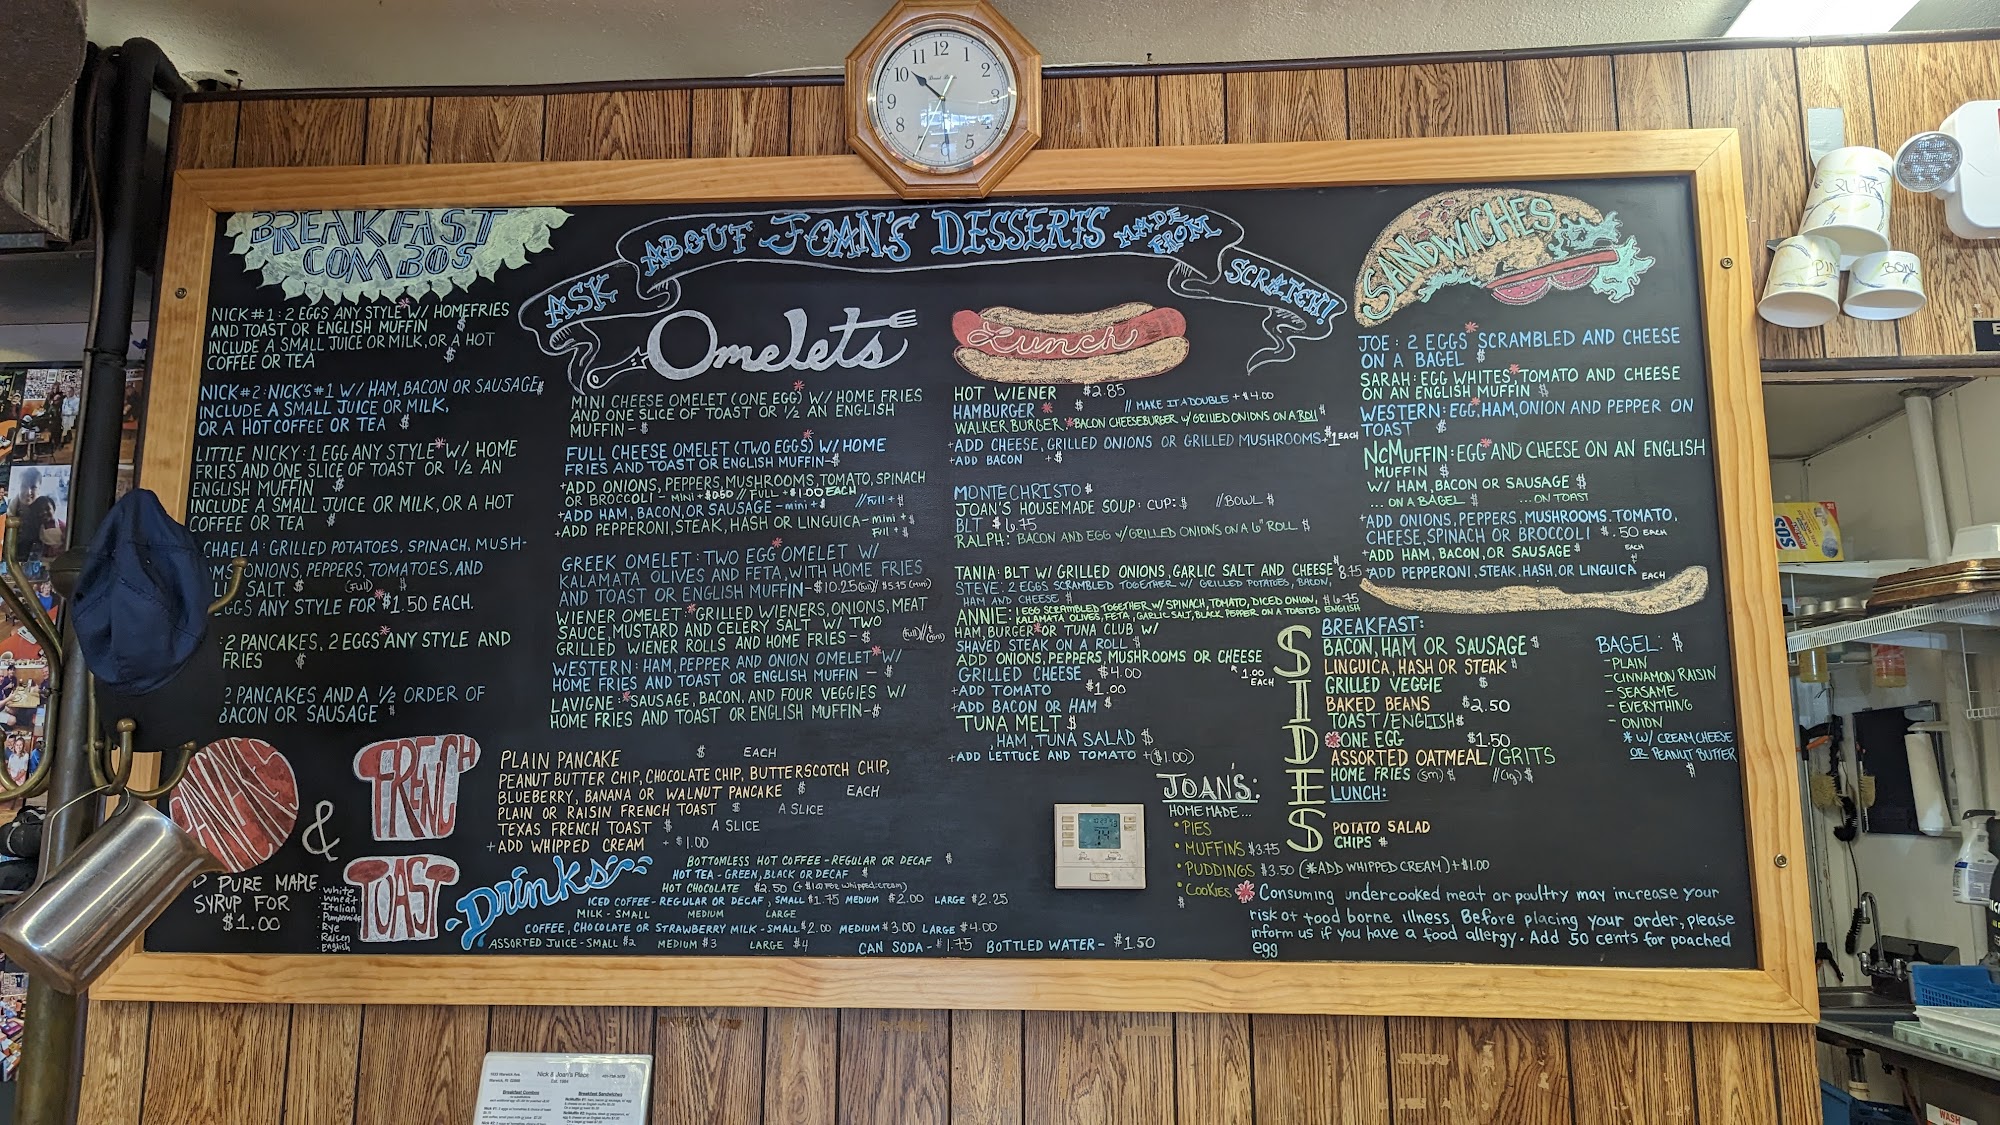 BREAKFAST
COMBOS
NICK #1: 2 EGGS ANY STYLE* W/ HOMEFRIES
AND TOAST OR ENGLISH MUFFIN $
INCLUDE A SMALL JUICE OR MILK, OR A HOT
COFFEE OR TEA $
NICK #2: NICK'S #1 W/ HAM, BACON OR SAUSAGE $
INCLUDE A SMALL JUICE OR MILK,
OR A HOT COFFEE OR TEA $
LITTLE NICKY: 1 EGG ANY STYLE* W/ HOME
FRIES AND ONE SLICE OF TOAST OR 1/2 AN
ENGLISH MUFFIN $
INCLUDE A SMALL JUICE OR MILK, OR A HOT
COFFEE OR TEA $
CHAELA: GRILLED POTATOES, SPINACH, MUSH-
MS, ONIONS, PEPPERS, TOMATOES, AND
SALT. $ (Full) $
EGGS ANY STYLE FOR *$1.50 EACH.
: 2 PANCAKES, 2 EGGS* ANY STYLE AND
FRIES $
2 PANCAKES AND A 1/2 ORDER OF
BACON OR SAUSAGE $
PANCAKES
&
FRENCH
TOAST
PURE MAPLE
SYRUP FOR
$1.00
White
Wheat
Italian
Rye
Raisen
English
ASK ABOUT JOAN'S DESSERTS MADE FROM SCRATCH!
Omelets
MINI CHEESE OMELET (ONE EGG)* W/ HOME FRIES
AND ONE SLICE OF TOAST OR 1/2 AN ENGLISH
MUFFIN - $
FULL CHEESE OMELET (TWO EGGS)* W/ HOME
FRIES AND TOAST OR ENGLISH MUFFIN - $
+ADD ONIONS, PEPPERS, MUSHROOMS, TOMATO, SPINACH
OR BROCCOLI - MINI +$0.50 // FULL +$1.00 EACH
+ADD HAM, BACON, OR SAUSAGE - mini +$ //Full +$
+ADD PEPPERONI, STEAK, HASH OR LINGUICA - mini +$
Full +$
GREEK OMELET: TWO EGG* OMELET W/
KALAMATA OLIVES AND FETA, WITH HOME FRIES
AND TOAST OR ENGLISH MUFFIN - $10.25 (full) // $5.75 (mini)
WIENER OMELET: *GRILLED WIENERS, ONIONS, MEAT
SAUCE, MUSTARD AND CELERY SALT W/ TWO
GRILLED WIENER ROLLS AND HOME FRIES - $ (full) // (mini)
WESTERN: HAM, PEPPER AND ONION OMELET* W/
HOME FRIES AND TOAST OR ENGLISH MUFFIN - $
LAVIGNE: *SAUSAGE, BACON, AND FOUR VEGGIES W/
HOME FRIES AND TOAST OR ENGLISH MUFFIN - $
PLAIN PANCAKE $ EACH
PEANUT BUTTER CHIP, CHOCOLATE CHIP, BUTTERSCOTCH CHIP,
BLUEBERRY, BANANA OR WALNUT PANCAKE $ EACH
PLAIN OR RAISIN FRENCH TOAST $ A SLICE
TEXAS FRENCH TOAST $ A SLICE
+ADD WHIPPED CREAM + $1.00
Drinks
BOTTOMLESS HOT COFFEE - REGULAR OR DECAF $
HOT TEA - GREEN, BLACK OR DECAF $
HOT CHOCOLATE $2.50 (+ $1.00 FOR whipped cream)
ICED COFFEE - REGULAR OR DECAF, SMALL $1.75 MEDIUM $2.00 LARGE $2.25
MILK - SMALL MEDIUM LARGE
COFFEE, CHOCOLATE OR STRAWBERRY MILK - SMALL $2.00 MEDIUM $3.00 LARGE $4.00
ASSORTED JUICE - SMALL $2 MEDIUM $3 LARGE $4
CAN SODA - $1.75 BOTTLED WATER - $1.50
Lunch
HOT WIENER $2.85
HAMBURGER * $ // MAKE IT A DOUBLE + $4.00
WALKER BURGER: *BACON CHEESEBURGER W/ GRILLED ONIONS ON A ROLL $
+ADD CHEESE, GRILLED ONIONS OR GRILLED MUSHROOMS +$1 EACH
+ADD BACON +$
MONTE CHRISTO $
JOAN'S HOUSEMADE SOUP: CUP: $ //BOWL $
BLT $6.75
RALPH: BACON AND EGG W/ GRILLED ONIONS ON A 6" ROLL $
TANIA: BLT W/ GRILLED ONIONS, GARLIC SALT AND CHEESE $8.75
STEVE: 2 EGGS SCRAMBLED TOGETHER W/ GRILLED POTATOES, BACON,
HAM AND CHEESE $
ANNIE: 1 EGG SCRAMBLED TOGETHER W/ SPINACH, TOMATO, DICED ONION, $6.75
KALAMATA OLIVES, FETA, GARLIC SALT, BLACK PEPPER ON A TOASTED ENGLISH
HAM, BURGER* OR TUNA CLUB W/
SHAVED STEAK ON A ROLL $
ADD ONIONS, PEPPERS, MUSHROOMS OR CHEESE
1.00 EACH
GRILLED CHEESE $4.00
+ADD TOMATO $1.00
+ADD BACON OR HAM $
TUNA MELT $
, HAM, TUNA SALAD $
+ADD LETTUCE AND TOMATO +($1.00)
JOAN'S:
HOMEMADE...
• PIES
• MUFFINS $3.75
• PUDDINGS $3.50 (*ADD WHIPPED CREAM) + $1.00
• COOKIES
$
SANDWICHES
JOE: 2 EGGS* SCRAMBLED AND CHEESE
ON A BAGEL $
SARAH: EGG WHITES*, TOMATO AND CHEESE
ON AN ENGLISH MUFFIN $
WESTERN: EGG*, HAM, ONION AND PEPPER ON
TOAST $
NCMUFFIN: EGG* AND CHEESE ON AN ENGLISH
MUFFIN $
W/ HAM, BACON OR SAUSAGE $
... ON A BAGEL $ ... ON TOAST
+ADD ONIONS, PEPPERS, MUSHROOMS, TOMATO,
CHEESE, SPINACH OR BROCCOLI $.50 EACH
+ADD HAM, BACON, OR SAUSAGE $ EACH
+ADD PEPPERONI, STEAK, HASH, OR LINGUICA EACH
SIDES
BREAKFAST:
BACON, HAM OR SAUSAGE $
LINGUICA, HASH OR STEAK $
GRILLED VEGGIE $
BAKED BEANS $2.50
TOAST/ENGLISH $
*ONE EGG $1.50
ASSORTED OATMEAL/GRITS
HOME FRIES (sm) $ //(lg) $
LUNCH:
POTATO SALAD
CHIPS $
BAGEL: $
- PLAIN
- CINNAMON RAISIN
- SEASAME
- EVERYTHING
- ONION
* W/ CREAM CHEESE
OR PEANUT BUTTER
$
* Consuming undercooked meat or poultry may increase your
risk of food borne illness. Before placing your order, please
inform us if you have a food allergy. Add 50 cents for poached
egg
12 1 2 3 4 5 7 8 9 10 11
74
QUART
PINT
BOWL
SOS
Nick & Joan's Place
Est. 1984
Warwick, RI 02888
Breakfast Combos
Breakfast Sandwiches
WASH